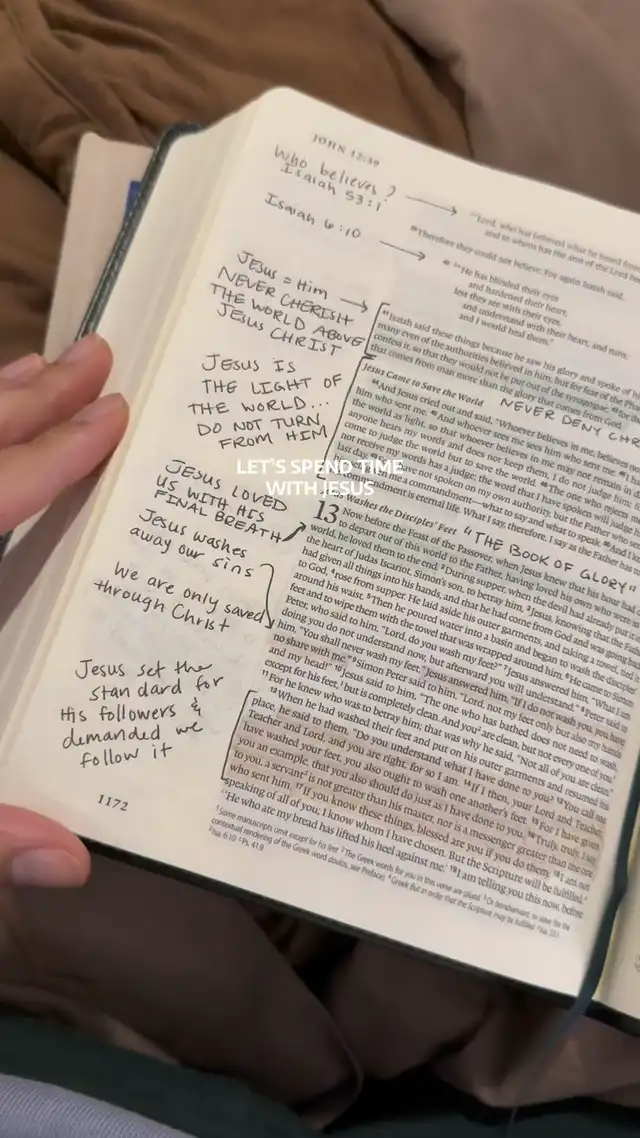 JOHN 12:39
Who believes?
Isaiah 53:1
Isaiah 6:10
Jesus = Him
NEVER CHERISH
THE WORLD ABOVE
JESUS CHRIST
JESUS IS
THE LIGHT OF
THE WORLD...
DO NOT TURN
FROM HIM
JESUS LOVED
US WITH HIS
FINAL BREATH
Jesus washes
away our sins
We are only saved
through Christ
Jesus set the
standard for
His followers &
demanded we
follow it
1172
LET'S SPEND TIME
WITH JESUS
"Lord, who has believed what he heard from
and to whom has the arm of the Lord
Therefore they could not believe. For again Isaiah said,
"He has blinded their eyes
and hardened their heart,
lest they see with their eyes,
and understand with their heart, and turn,
and I would heal them."
Isaiah said these things because he saw his glory and spoke of
many even of the authorities believed in him, but for fear of the
confess it, so that they would not be put out of the synagogue;
that comes from man more than the glory that comes from God.
Jesus Came to Save the World
NEVER DENY CHR
44 And Jesus cried out and said, "Whoever believes in me, believes
him who sent me. 45 And whoever sees me sees him who sent me.
the world as light, so that whoever believes in me may not remain in
anyone hears my words and does not keep them, I do not judge him;
come to judge the world but to save the world. The one who rejects
not receive my words has a judge; the word that I have spoken will judge
last day. have not spoken on my own authority, but the Father who
me a commandment—what to say and what to speak.
commandment is eternal life. What I say, therefore, I say as the Father has
Washes the Disciples' Feet
"THE BOOK OF GLORY"
13 Now before the Feast of the Passover, when Jesus knew that his hour had
to depart out of this world to the Father, having loved his own who were
world, he loved them to the end. 2 During supper, when the devil had already put
the heart of Judas Iscariot, Simon's son, to betray him, 3 Jesus, knowing that the
had given all things into his hands, and that he had come from God and was going
to God, 4 rose from supper. He laid aside his outer garments, and taking a towel, tied
around his waist. 5 Then he poured water into a basin and began to wash the
feet and to wipe them with the towel that was wrapped around him. 6 He came to Simon
Peter, who said to him, "Lord, do you wash my feet?" 7 Jesus answered him, "What I am
doing you do not understand now, but afterward you will understand." 8 Peter said to
him, "You shall never wash my feet." Jesus answered him, "If I do not wash you, you have
no share with me." 9 Simon Peter said to him, "Lord, not my feet only but also my hands
and my head!" 10 Jesus said to him, "The one who has bathed does not need to wash,
except for his feet, but is completely clean. And you are clean, but not every one of you."
11 For he knew who was to betray him; that was why he said, "Not all of you are clean."
12 When he had washed their feet and put on his outer garments and resumed his
place, he said to them, "Do you understand what I have done to you? 13 You call me
Teacher and Lord, and you are right, for so I am. 14 If I then, your Lord and Teacher,
have washed your feet, you also ought to wash one another's feet. 15 For I have given
you an example, that you also should do just as I have done to you. 16 Truly, truly, I say
to you, a servant is not greater than his master, nor is a messenger greater than the one
who sent him. 17 If you know these things, blessed are you if you do them. 18 I am not
speaking of all of you; I know whom I have chosen. But the Scripture will be fulfilled,
'He who ate my bread has lifted his heel against me.' 19 I am telling you this now, before